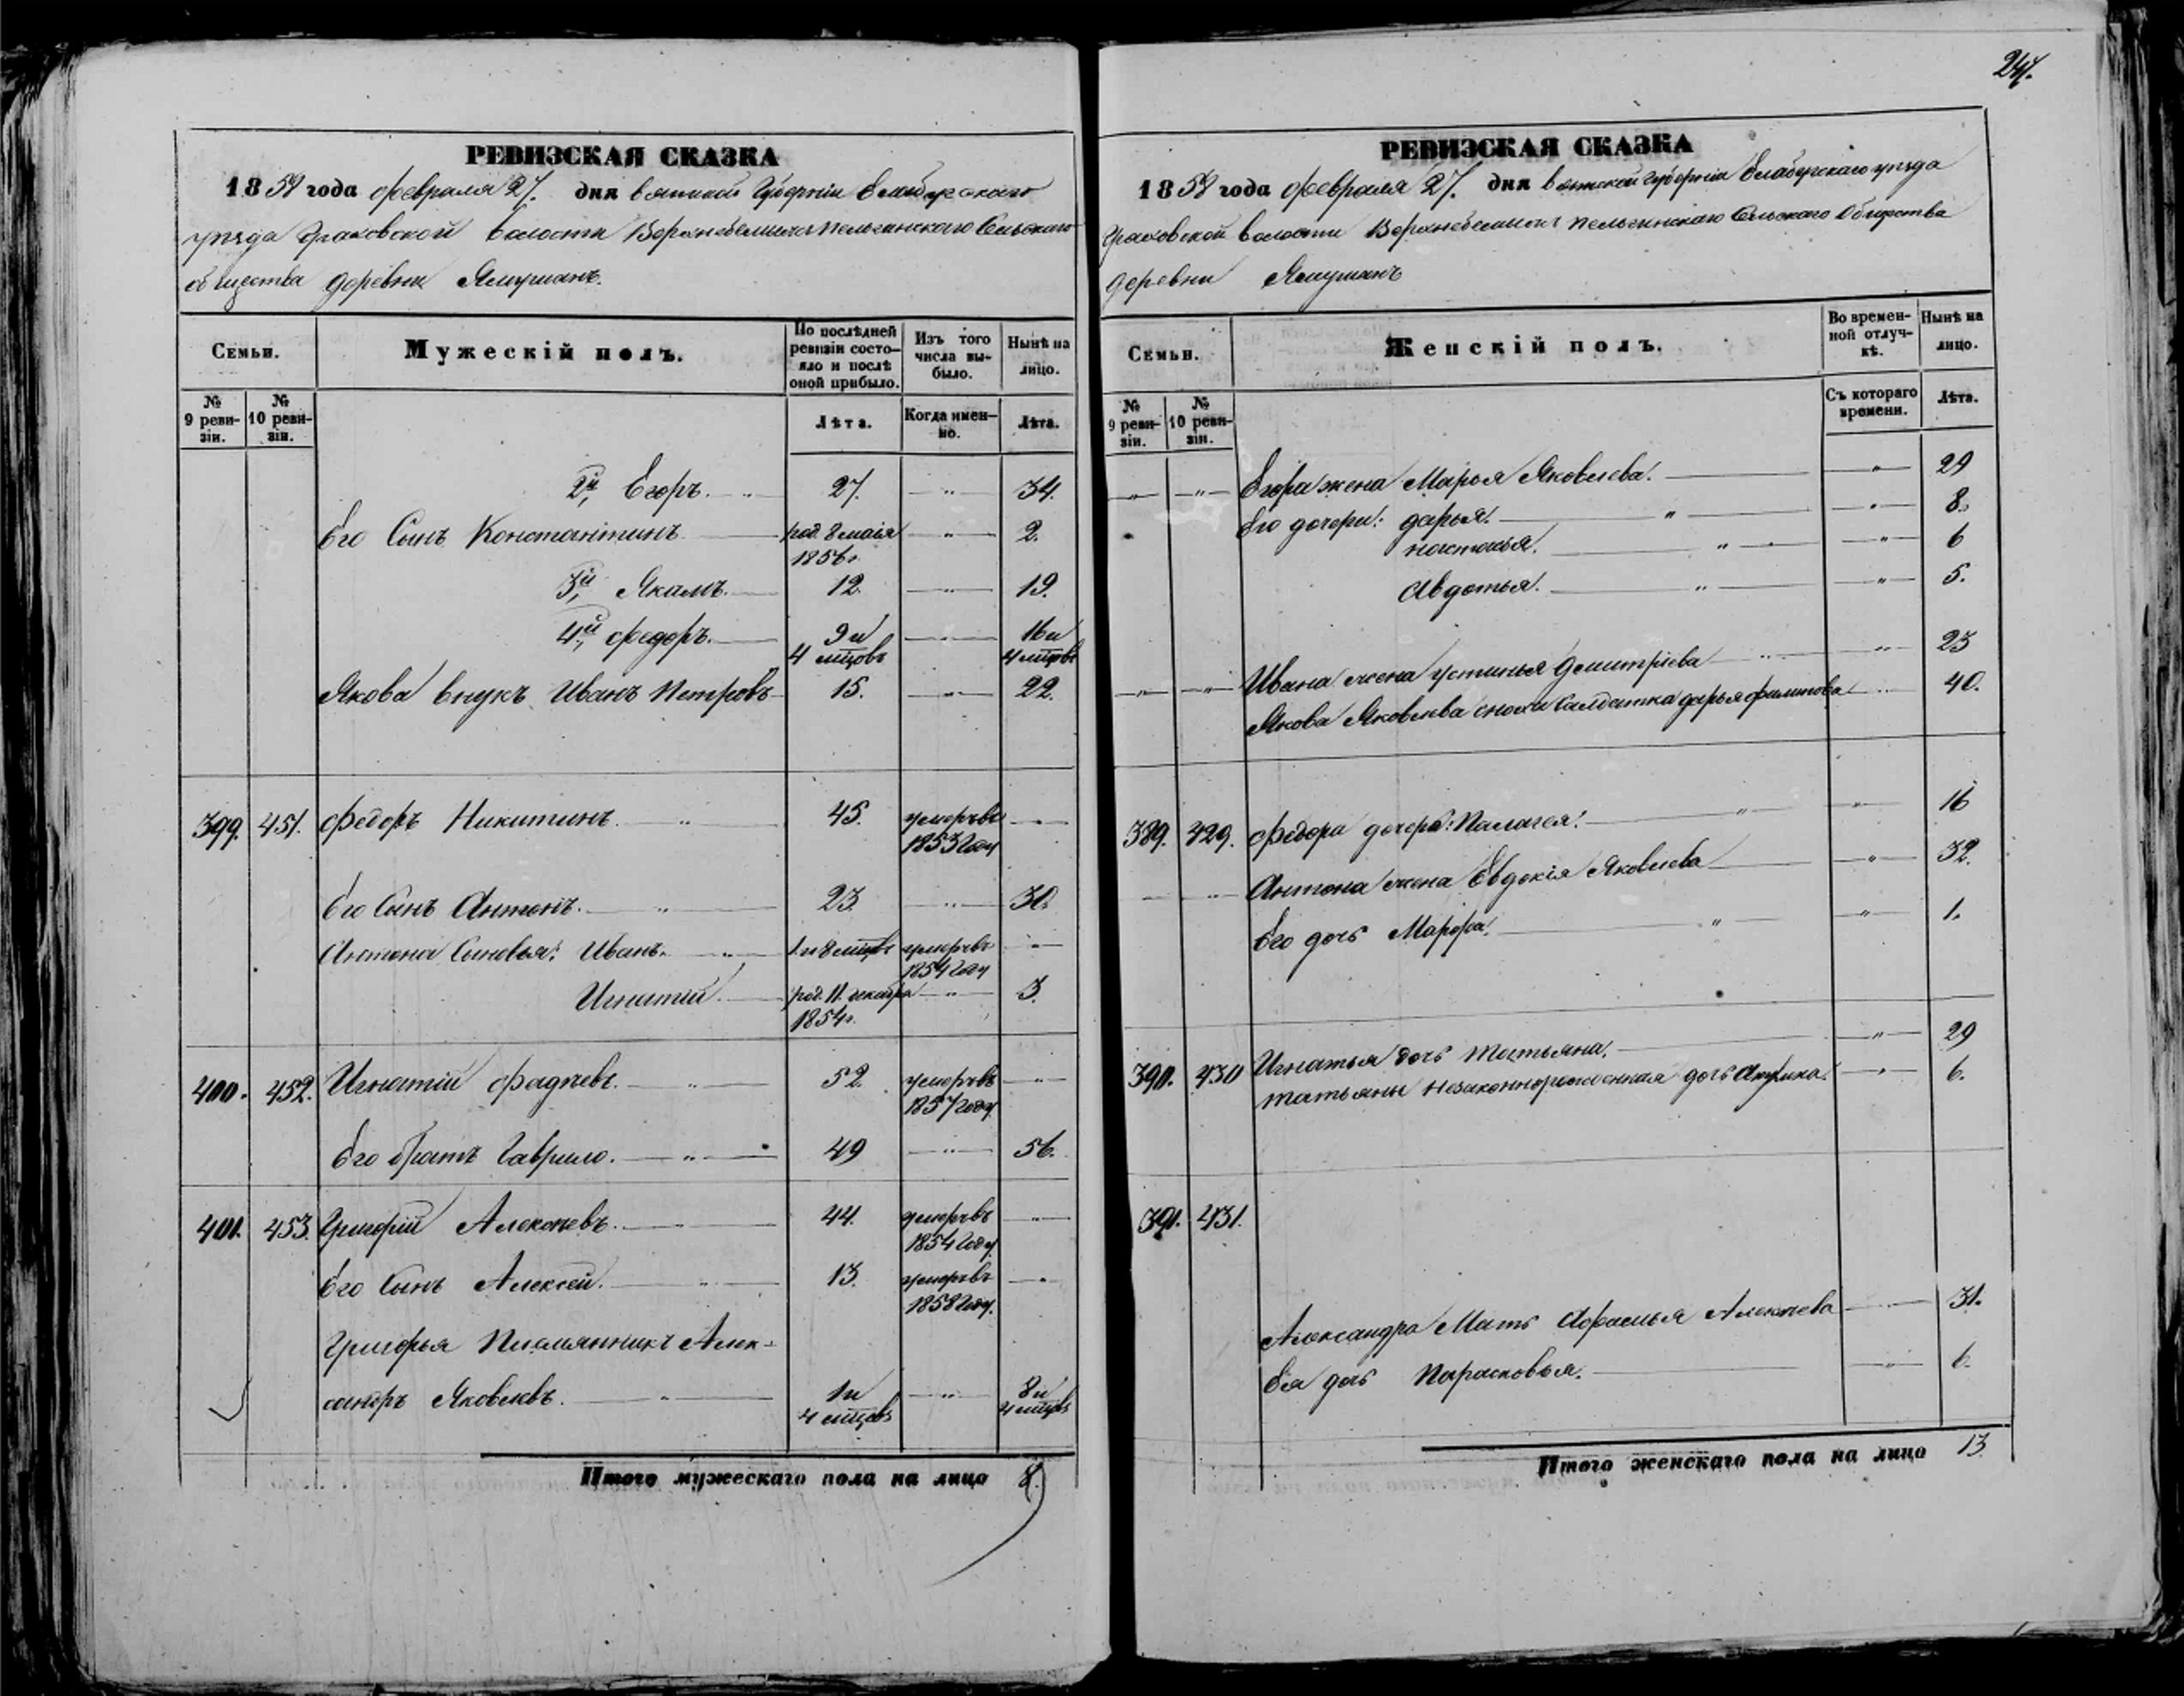 РЕВИЗСКАЯ СКАЗКА
1858 года февраля 27. дня вятской Губерніи Елабужскаго
уѣзда Граховской волости Верхнебемыж пельгинскаго Сельскаго
общества деревни Ямурманъ.
Семьи.
Мужескій полъ.
По послѣдней ревизіи состо-
яло и послѣ
оной прибыло.
Изъ того
числа вы-
было.
Нынѣ на
лицо.
№
9 реви-
зіи.
№
10 реви-
зіи.
Лѣта.
Когда имен-
но.
Лѣта.
2й Егоръ. 27. " 34.
Его Сынъ Константинъ род. 8 маія " 2.
1856г.
3й Якимъ. 12. " 19.
4й Федоръ. 9 и " 16 и
4 мцовъ 4 мцовъ
Якова внукъ Иванъ Петровъ 15. " 22.
399. 451. Федоръ Никитинъ. " 45. умеръ въ "
1853 году
Его Сынъ Антонъ. " 23. " 30.
Антона Сыновья: Иванъ. " 1 и 8 мцовъ умеръ въ "
1854 году
Игнатій. род. 11. декабря " 3.
1854г.
400. 452. Игнатій Фадѣевъ. " 52. умеръ въ "
1857 году
Его братъ Гаврило. " 49 " 56.
401. 453. Григорій Алексѣевъ. 44. умеръ въ "
1854 году.
Его Сынъ Алексѣй. " 13. умеръ въ "
1858 году.
Григорья Племянникъ Алек-
сандръ Яковлевъ. " 1 и " 8 и
4 мцовъ 4 мцовъ
Итого мужескаго пола на лицо 8.
247.
РЕВИЗСКАЯ СКАЗКА
1858 года февраля 27. дня вятской губерніи Елабужскаго уѣзда
Граховской волости Верхнебемыж пельгинскаго Сельскаго Общества
деревни Ямурманъ
Семьи.
Женскій полъ.
Во времен-
ной отлуч-
кѣ.
Нынѣ на
лицо.
№
9 реви-
зіи.
№
10 реви-
зіи.
Съ котораго
времени.
Лѣта.
" " Егора жена Марья Яковлева. " 29
Его дочери: дарья. " " 8.
настасья. " " 6
Авдотья. " " 5.
" " Ивана жена устинья Дмитріева " " 23
Якова Яковлева сноха Салдатка дарья филипова " 40.
389. 429. Федора дочерь: Палагея. " " 16
" Антона жена Евдокія Яковлева " 32.
Его дочь Марфа. " " 1.
390. 430 Игнатья дочь Татьяна. " 29
Татьяны незаконнорожденная дочь Акулина. " 6.
391. 431.
Александра Мать Афимья Алексѣева " 31.
Ея дочь Парасковья. " 6.
Итого женскаго пола на лицо 13